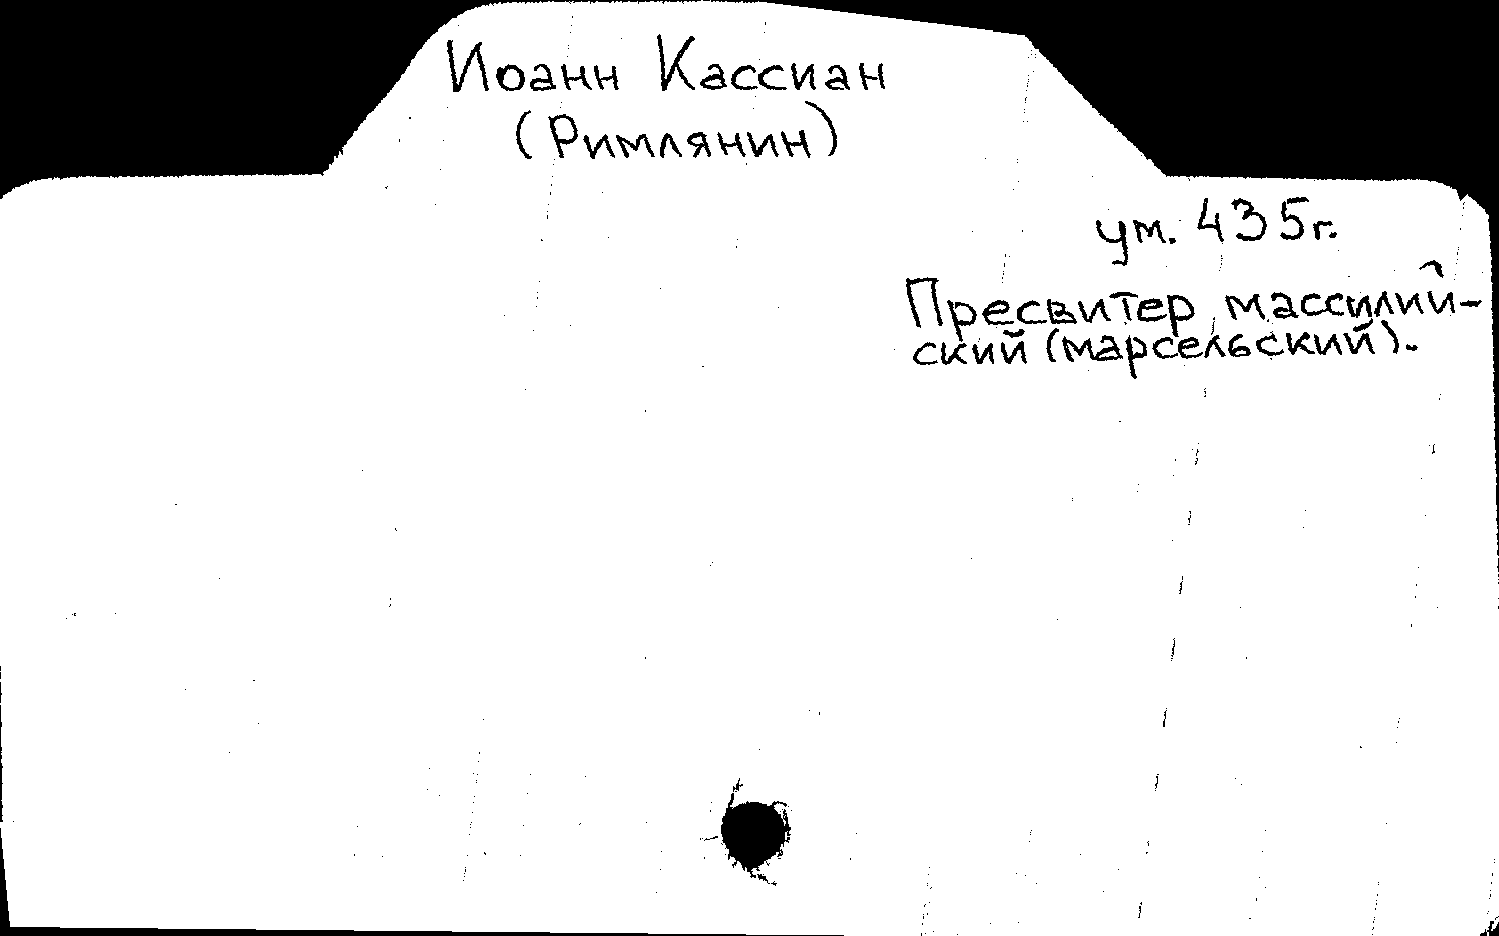 Иоанн Кассиан
(Римлянин)
ум. 435г.
Пресвитер массилий-
ский (марсельский).